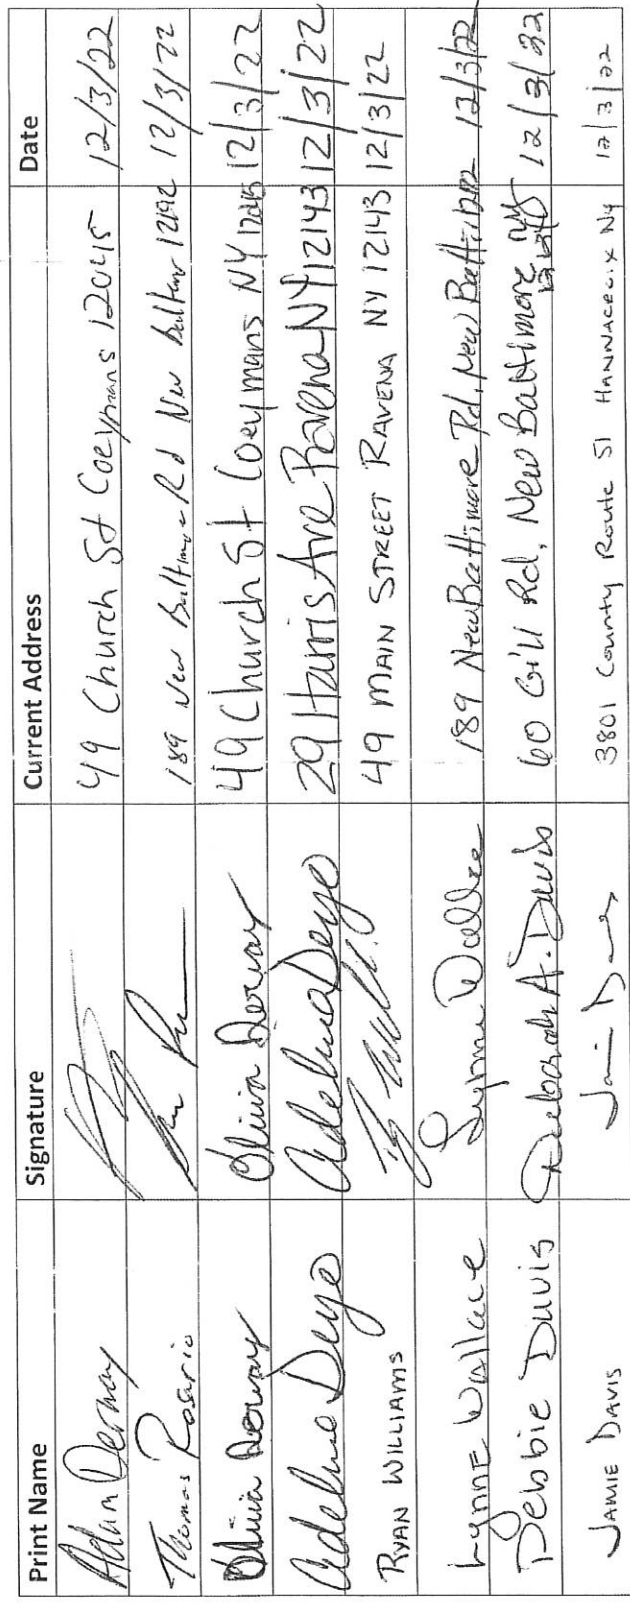 Print Name Signature Current Address Date
Adam Derway 49 Church St Coeymans 12045 12/3/22
Thomas Rosario 189 New Baltimore Rd New Baltimore 12192 12/3/22
Olivia Derway Olivia Derway 49 Church St Coeymans NY 12045 12/3/22
Adeline Deyo Adeline Deyo 29 Harris Ave Ravena NY 12143 12/3/22
RYAN WILLIAMS 49 MAIN STREET RAVENA NY 12143 12/3/22
Lynne Wallace Lynne Wallace 189 New Baltimore Rd, New Balt. 12/3/22
Debbie Davis Deborah A. Davis 60 Gill Rd, New Baltimore 12/3/22
JAMIE DAVIS Jamie Davis 3801 County Route 51 HANNACROIX NY 12/3/22